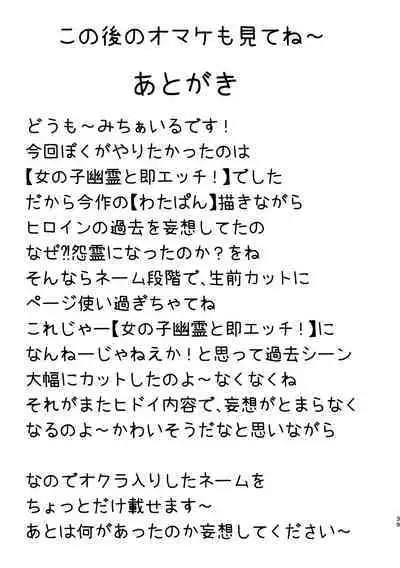 この後のオマケも見てね～
あとがき
どうも～みちぁいるです！
今回ぼくがやりたかったのは
【女の子幽霊と即エッチ！】でした
だから今作の【わたぱん】描きながら
ヒロインの過去を妄想してたの
なぜ⁈怨霊になったのか？をね
そんならネーム段階で、生前カットに
ページ使い過ぎちゃてね
これじゃー【女の子幽霊と即エッチ！】に
なんねーじゃねえか！と思って過去シーン
大幅にカットしたのよ～なくなくね
それがまたヒドイ内容で、妄想がとまらなく
なるのよ～かわいそうだなと思いながら
なのでオクラ入りしたネームを
ちょっとだけ載せます～
あとは何があったのか妄想してください～
39